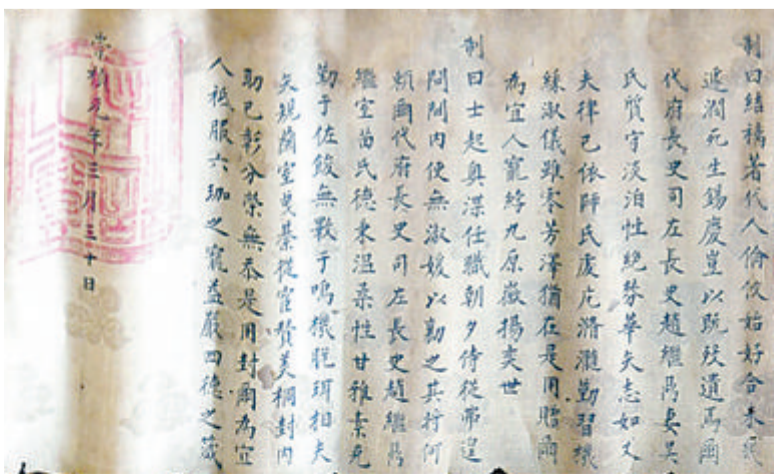 制曰結褵著代人倫攸始好合未終
遽潤死生錫慶豈以既歿遺焉爾
代府長史司左長史趙繼爲妻吳
氏質守淡泊性絶芬華矢志如乂
夫律己依師氏虔
綠淑儀雖零芳澤猶在是用贈爾
為宜人寵綍九原徽揚奕世
制曰士起輿渫仕職朝夕侍從常遑
閫內使無淑媛以勷之其將何
賴爾代府長史司左長史趙繼爲
繼室苗氏德秉溫柔性甘雅素克
勤于佐餕無斁于鳴機脫珥相夫
矢規蘭室曳綦從宦贊美桐封內
助已彰分榮無忝是用封爾為宜
人祗服六珈之寵益嚴四德之箴
崇禎元年三月三十日